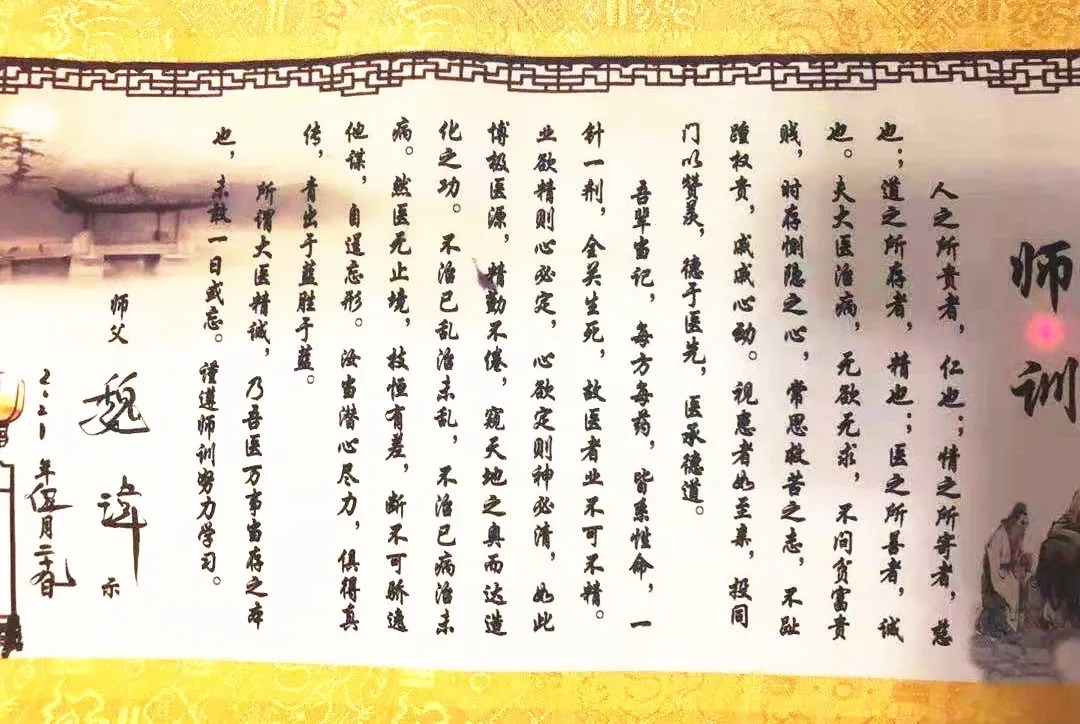 师训
人之所贵者，仁也；情之所寄者，慈
也；道之所存者，精也；医之所善者，诚
也。夫大医治病，无欲无求，不问贫富贵
贱，时存恻隐之心，常思救苦之志，不趾
踵权贵，戚戚心动。视患者如至亲，投同
门以赞美，德于医先，医承德道。
吾辈当记，每方每药，皆系性命，一
针一荆，全关生死，故医者业不可不精。
业欲精则心必定，心欲定则神必清，如此
博极医源，精勤不倦，窥天地之奥而达造
化之功。不治已乱治未乱，不治已病治未
病。然医无止境，技恒有差，断不可骄逸
他谋，自逞忘形。汝当潜心尽力，俱得真
传，青出于蓝胜于蓝。
所谓大医精诚，乃吾医万事当存之本
也，未敢一日或忘。谨遵师训努力学习。
师父 魏 示
2021年伍月二十九日